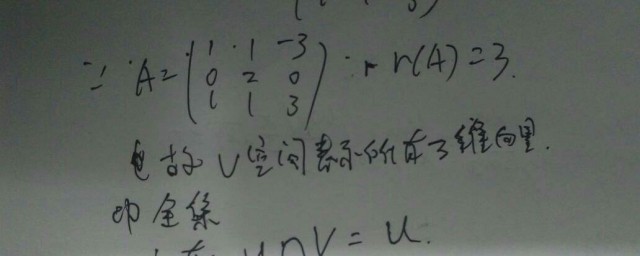 ∵ A = (1 1 -3
0 2 0
1 1 3) ∴ r(A)=3.
故 V空间表示所有3维向量.
即全集
U∩V = U.